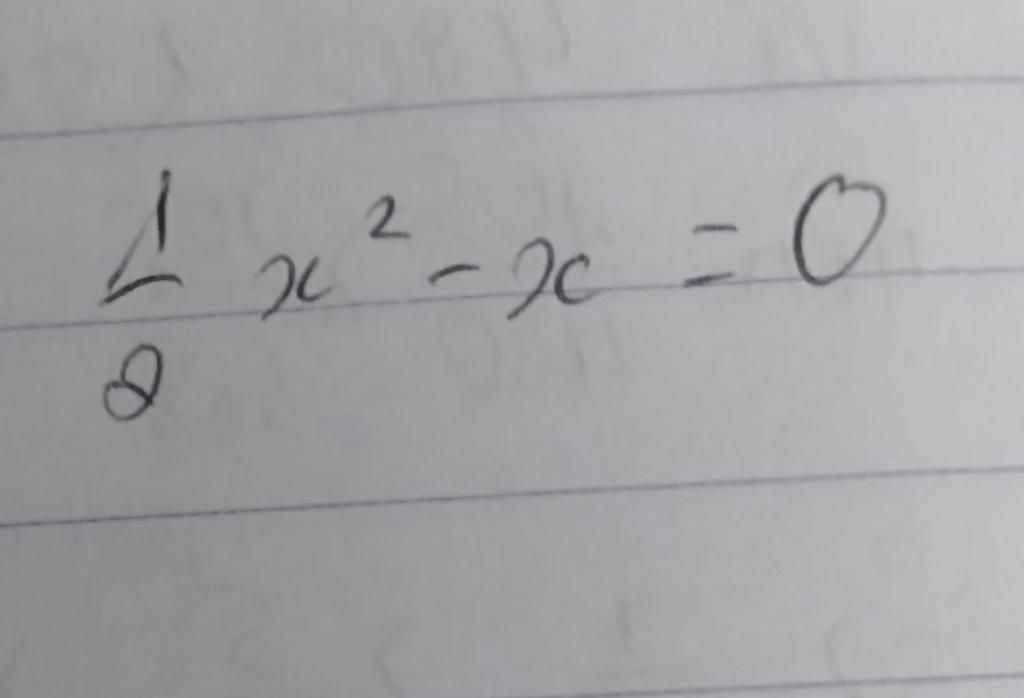 1/2 x² - x = 0